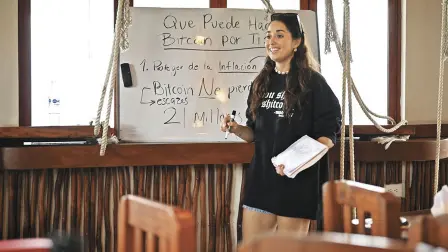 Que Puede Ha
Bitcoin por Ti
1. Proteger de la Inflación
Bitcoin No pier
→ escaso
21 Mill